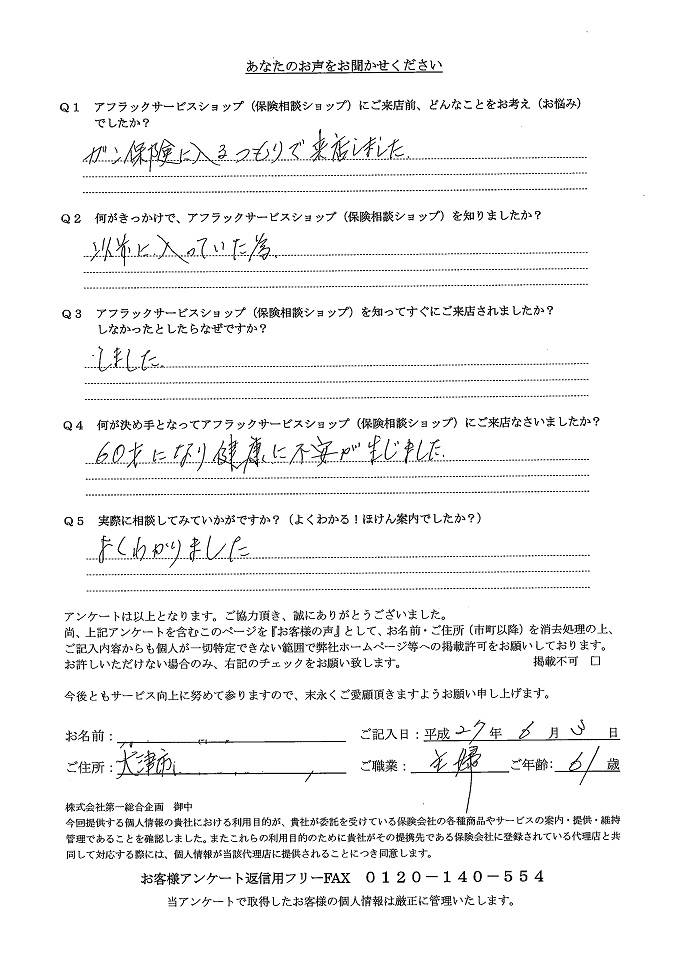 あなたのお声をお聞かせください
Q1 アフラックサービスショップ(保険相談ショップ)にご来店前、どんなことをお考え(お悩み)
でしたか?
ガン保険に入るつもりで来店しました.
Q2 何がきっかけで、アフラックサービスショップ(保険相談ショップ)を知りましたか?
以前に入っていた為.
Q3 アフラックサービスショップ(保険相談ショップ)を知ってすぐにご来店されましたか?
しなかったとしたらなぜですか?
しました.
Q4 何が決め手となってアフラックサービスショップ(保険相談ショップ)にご来店なさいましたか?
60才になり健康に不安が生じました.
Q5 実際に相談してみていかがですか?(よくわかる!ほけん案内でしたか?)
よくわかりました
アンケートは以上となります。ご協力頂き、誠にありがとうございました。
尚、上記アンケートを含むこのページを『お客様の声』として、お名前・ご住所(市町以降)を消去処理の上、
ご記入内容からも個人が一切特定できない範囲で弊社ホームページ等への掲載許可をお願いしております。
お許しいただけない場合のみ、右記のチェックをお願い致します。 掲載不可 □
今後ともサービス向上に努めて参りますので、末永くご愛顧頂きますようお願い申し上げます。
お名前: ご記入日:平成 27 年 6 月 3 日
ご住所: 大津市 ご職業: 主婦 ご年齢: 61 歳
株式会社第一総合企画 御中
今回提供する個人情報の貴社における利用目的が、貴社が委託を受けている保険会社の各種商品やサービスの案内・提供・維持
管理であることを確認しました。またこれらの利用目的のために貴社がその提携先である保険会社に登録されている代理店と共
同して対応する際には、個人情報が当該代理店に提供されることにつき同意します。
お客様アンケート返信用フリーFAX 0120-140-554
当アンケートで取得したお客様の個人情報は厳正に管理いたします。